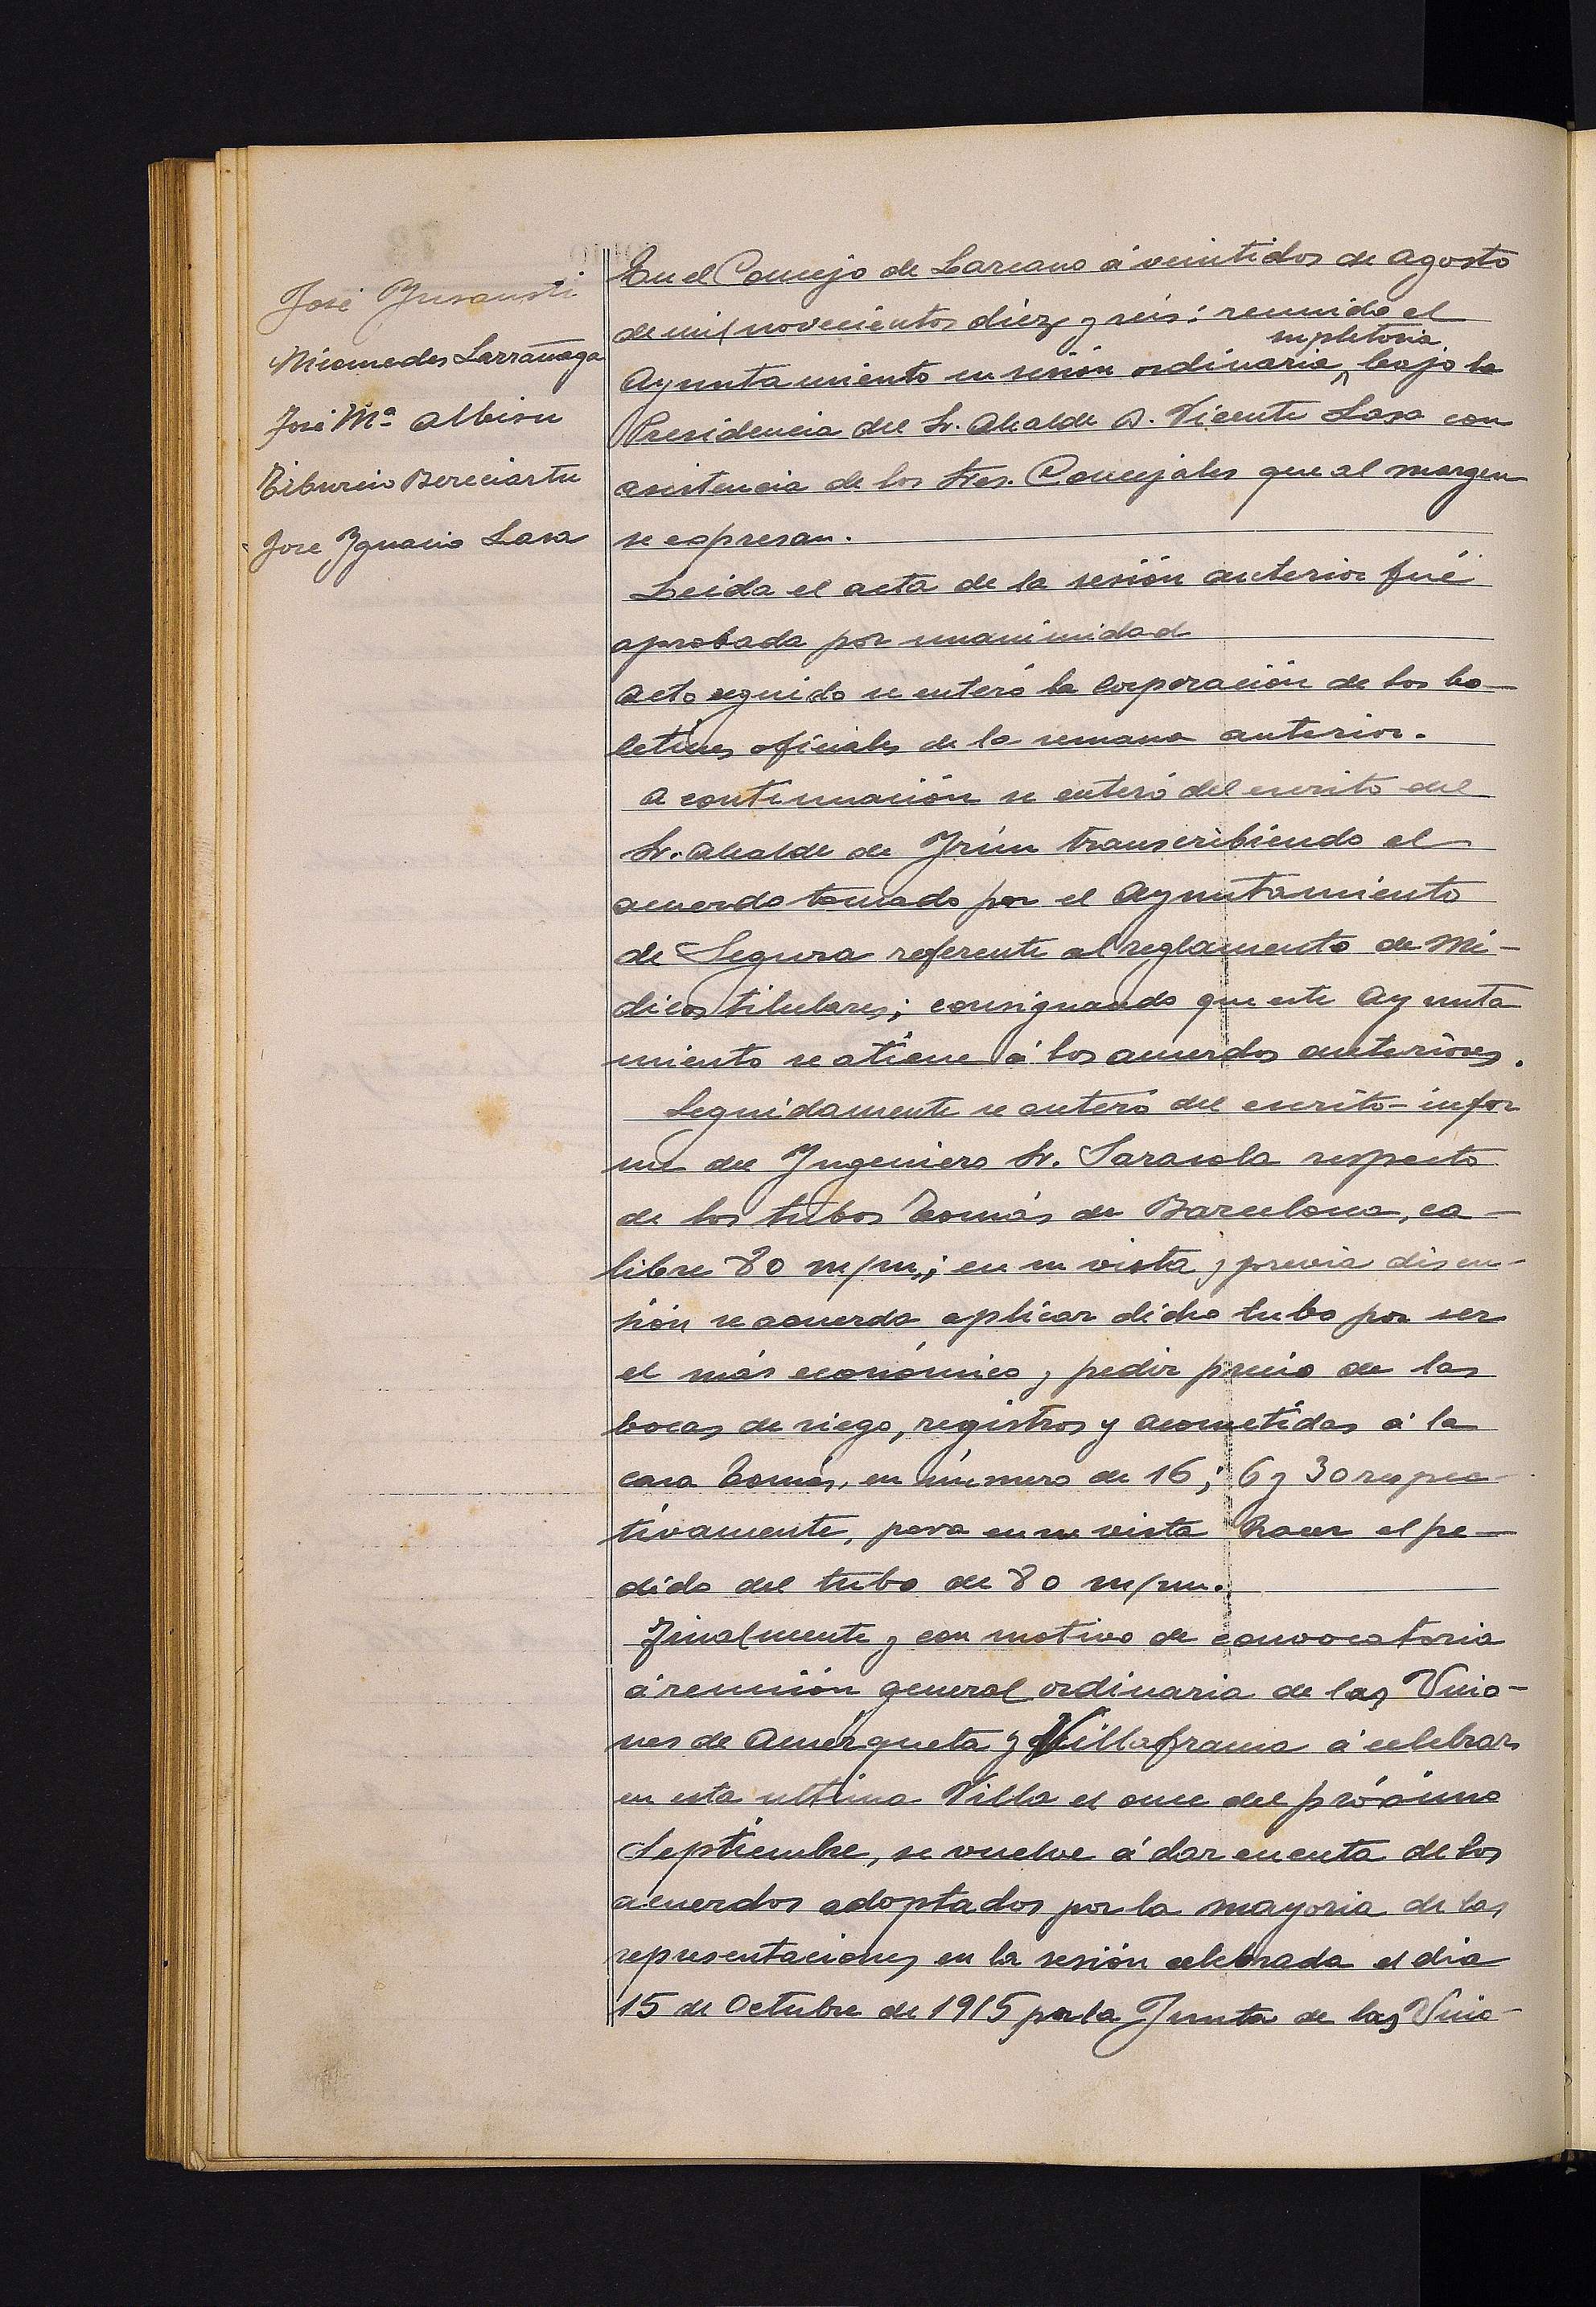 José Insausti
Nicomedes Larrañaga
José Mª Albisu
Tiburcio Bereciartu
Jose Ygnacio Lasa
En el Concejo de Lazcano á veintidos de Agosto
de mil novecientos diez y seis: reunido el
supletoria
Ayuntamiento en sesión ordinaria, bajo la
Presidencia del Sr. Alcalde D. Vicente Lasa con
asistencia de los Sres. Concejales que al margen
se expresan.
Leida el acta de la sesión anterior fué
aprobada por unanimidad
Acto seguido se enteró la Corporación de los bo-
letines oficiales de la semana anterior.
A continuación se enteró del escrito del
Sr. Alcalde de Yrún transcribiendo el
acuerdo tomado por el Ayuntamiento
de Segura referente al reglamento de Mé-
dicos titulares; consignando que este Ayunta
miento se atiene á los acuerdos anteriores.
Seguidamente se enteró del escrito-infor
me del Yngeniero Sr. Sarasola respecto
de los tubos Tomás de Barcelona, ca-
libre 80 m/m,; en su vista y previa discu-
sión se acuerda aplicar dicho tubo por ser
el más económico y pedir precio de las
bocas de riego, registros y acometidas á la
casa Tomás, en número de 16; 6 y 30 respec-
tivamente, para en su vista hacer el pe-
dido del tubo de 80 m/m.
Finalmente y con motivo de convocatoria
á reunión general ordinaria de las Unio-
nes de Amézqueta y Villafranca á celebrar
en esta ultima Villa el once del próximo
Septiembre, se vuelve á dar cuenta de los
acuerdos adoptados por la mayoria de las
representaciones en la sesión celebrada el dia
15 de Octubre de 1915 por la Junta de las Unio-